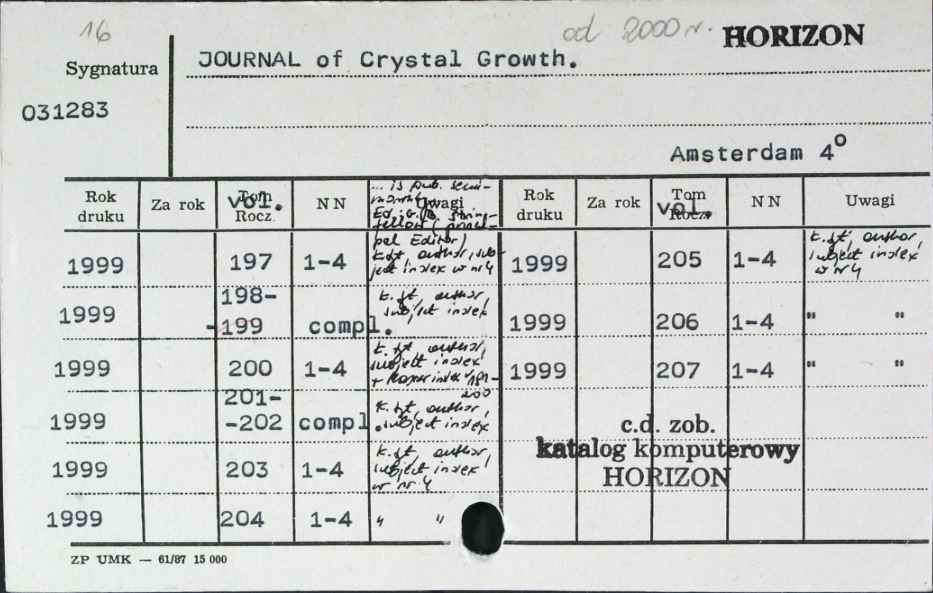 16
od 2000 r. HORIZON
Sygnatura
JOURNAL of Crystal Growth.
031283
Amsterdam 4⁰
Rok druku Za rok Tom Rocz. vol. NN Uwagi Rok druku Za rok Tom Rocz. vol. NN Uwagi
... is pub. semi-
monthly
Ed.: G.B. string-
fellow (princi-
pal Editor)
1999 197 1-4 k. tyt. author, sub-
ject index w nr 4
1999 205 1-4 k. tyt. author,
subject index
w nr 4
1999 198-
-199 compl. k. tyt. author
subject index
1999 206 1-4 " "
1999 200 1-4 k. tyt. author,
subject index
+ Master index 191-
200
1999 207 1-4 " "
1999 201-
-202 compl. k. tyt. author,
subject index
1999 203 1-4 k. tyt. author,
subject index
w nr 4
1999 204 1-4 " "
c.d. zob.
katalog komputerowy
HORIZON
ZP UMK — 61/87 15 000